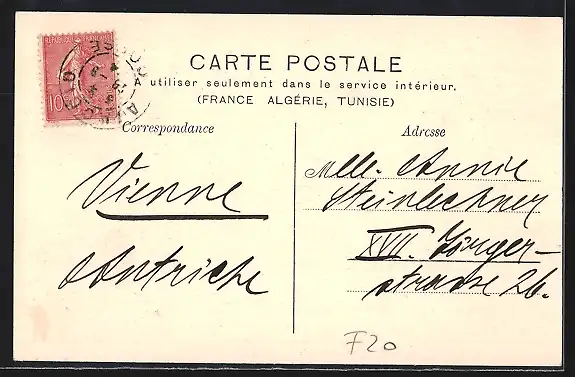 CARTE POSTALE
A utiliser seulement dans le service intérieur.
(FRANCE ALGÉRIE, TUNISIE)
Correspondance
Adresse
10
Vienne
Autriche
Melle. Annie
Steinlechner
XVII. Jörger-
strasse 26.
F20